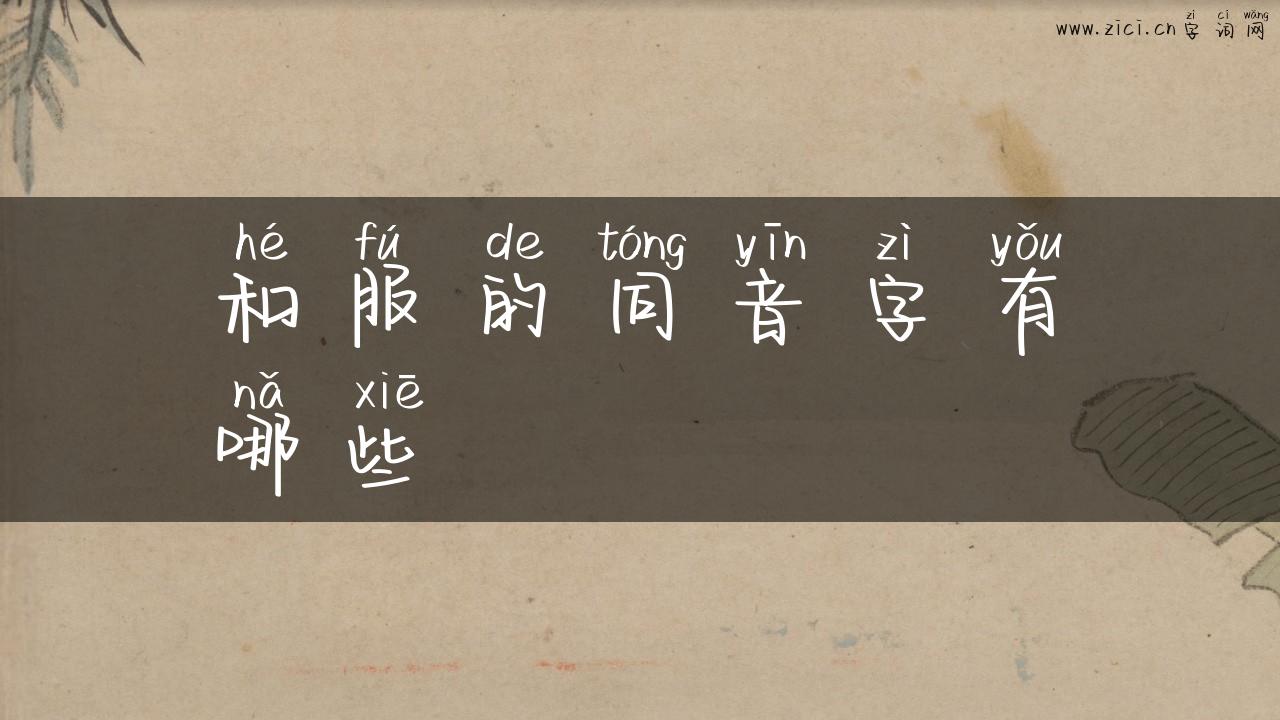 zì cí wǎng
www.zici.cn 字词网
hé fú de tóng yīn zì yǒu
和服的同音字有
nǎ xiē
哪些